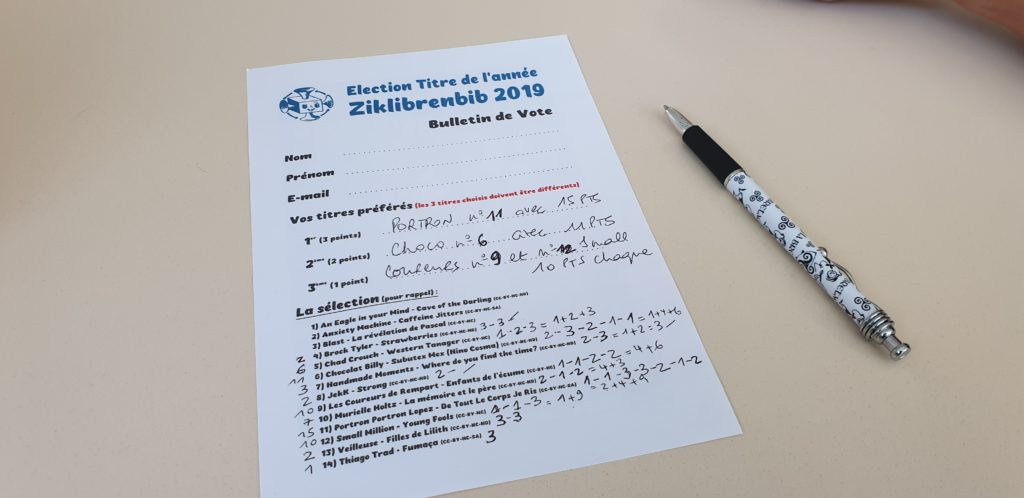 Election Titre de l'année
Ziklibrenbib 2019
Bulletin de Vote
Nom
Prénom
E-mail
Vos titres préférés (les 3 titres choisis doivent être différents)
1er (3 points) PORTRON n°11 avec 15 PTS
2ème (2 points) Choco n°6 avec 11 PTS
3ème (1 point) Coureurs n°9 et n°12 Small
10 PTS chaque
La sélection (pour rappel) :
1) An Eagle in your Mind - Cave of the Darling (CC-BY-NC-ND)
2) Anxiety Machine - Caffeine Jitters (CC-BY-NC-SA)
3) Blast - La révélation de Pascal (CC-BY-NC)
2 4) Brock Tyler - Strawberries (CC-BY-NC) 3-3
6 5) Chad Crouch - Western Tanager (CC-BY-NC) 1-2-3 = 1+2+3
11 6) Chocolat Billy - Subutex Mex (Nino Cosma) (CC-BY-NC-ND) 2-3-2-1-1 = 1+4+6
3 7) Handmade Moments - Where do you find the time? (CC-BY-NC-ND) 2-3 = 1+2=3
2 8) JekK - Strong (CC-BY-NC-ND) 2
10 9) Les Coureurs de Rempart - Enfants de l'écume (CC-BY-NC) 1-1-2-2 = 4+6
7 10) Murielle Holtz - La mémoire et le père (CC-BY-NC-ND) 2-1-2 = 4+3
15 11) Portron Portron Lopez - De Tout Le Corps Je Ris (CC-BY-NC-SA) 1-1-3-3-2-1-2
10 12) Small Million - Young Fools (CC-BY-NC) 1-1-3 = 1+9 = 2+4+9
2 13) Veilleuse - Filles de Lilith (CC-BY-NC-ND) 3-3
1 14) Thiago Trad - Fumaça (CC-BY-NC-SA) 3